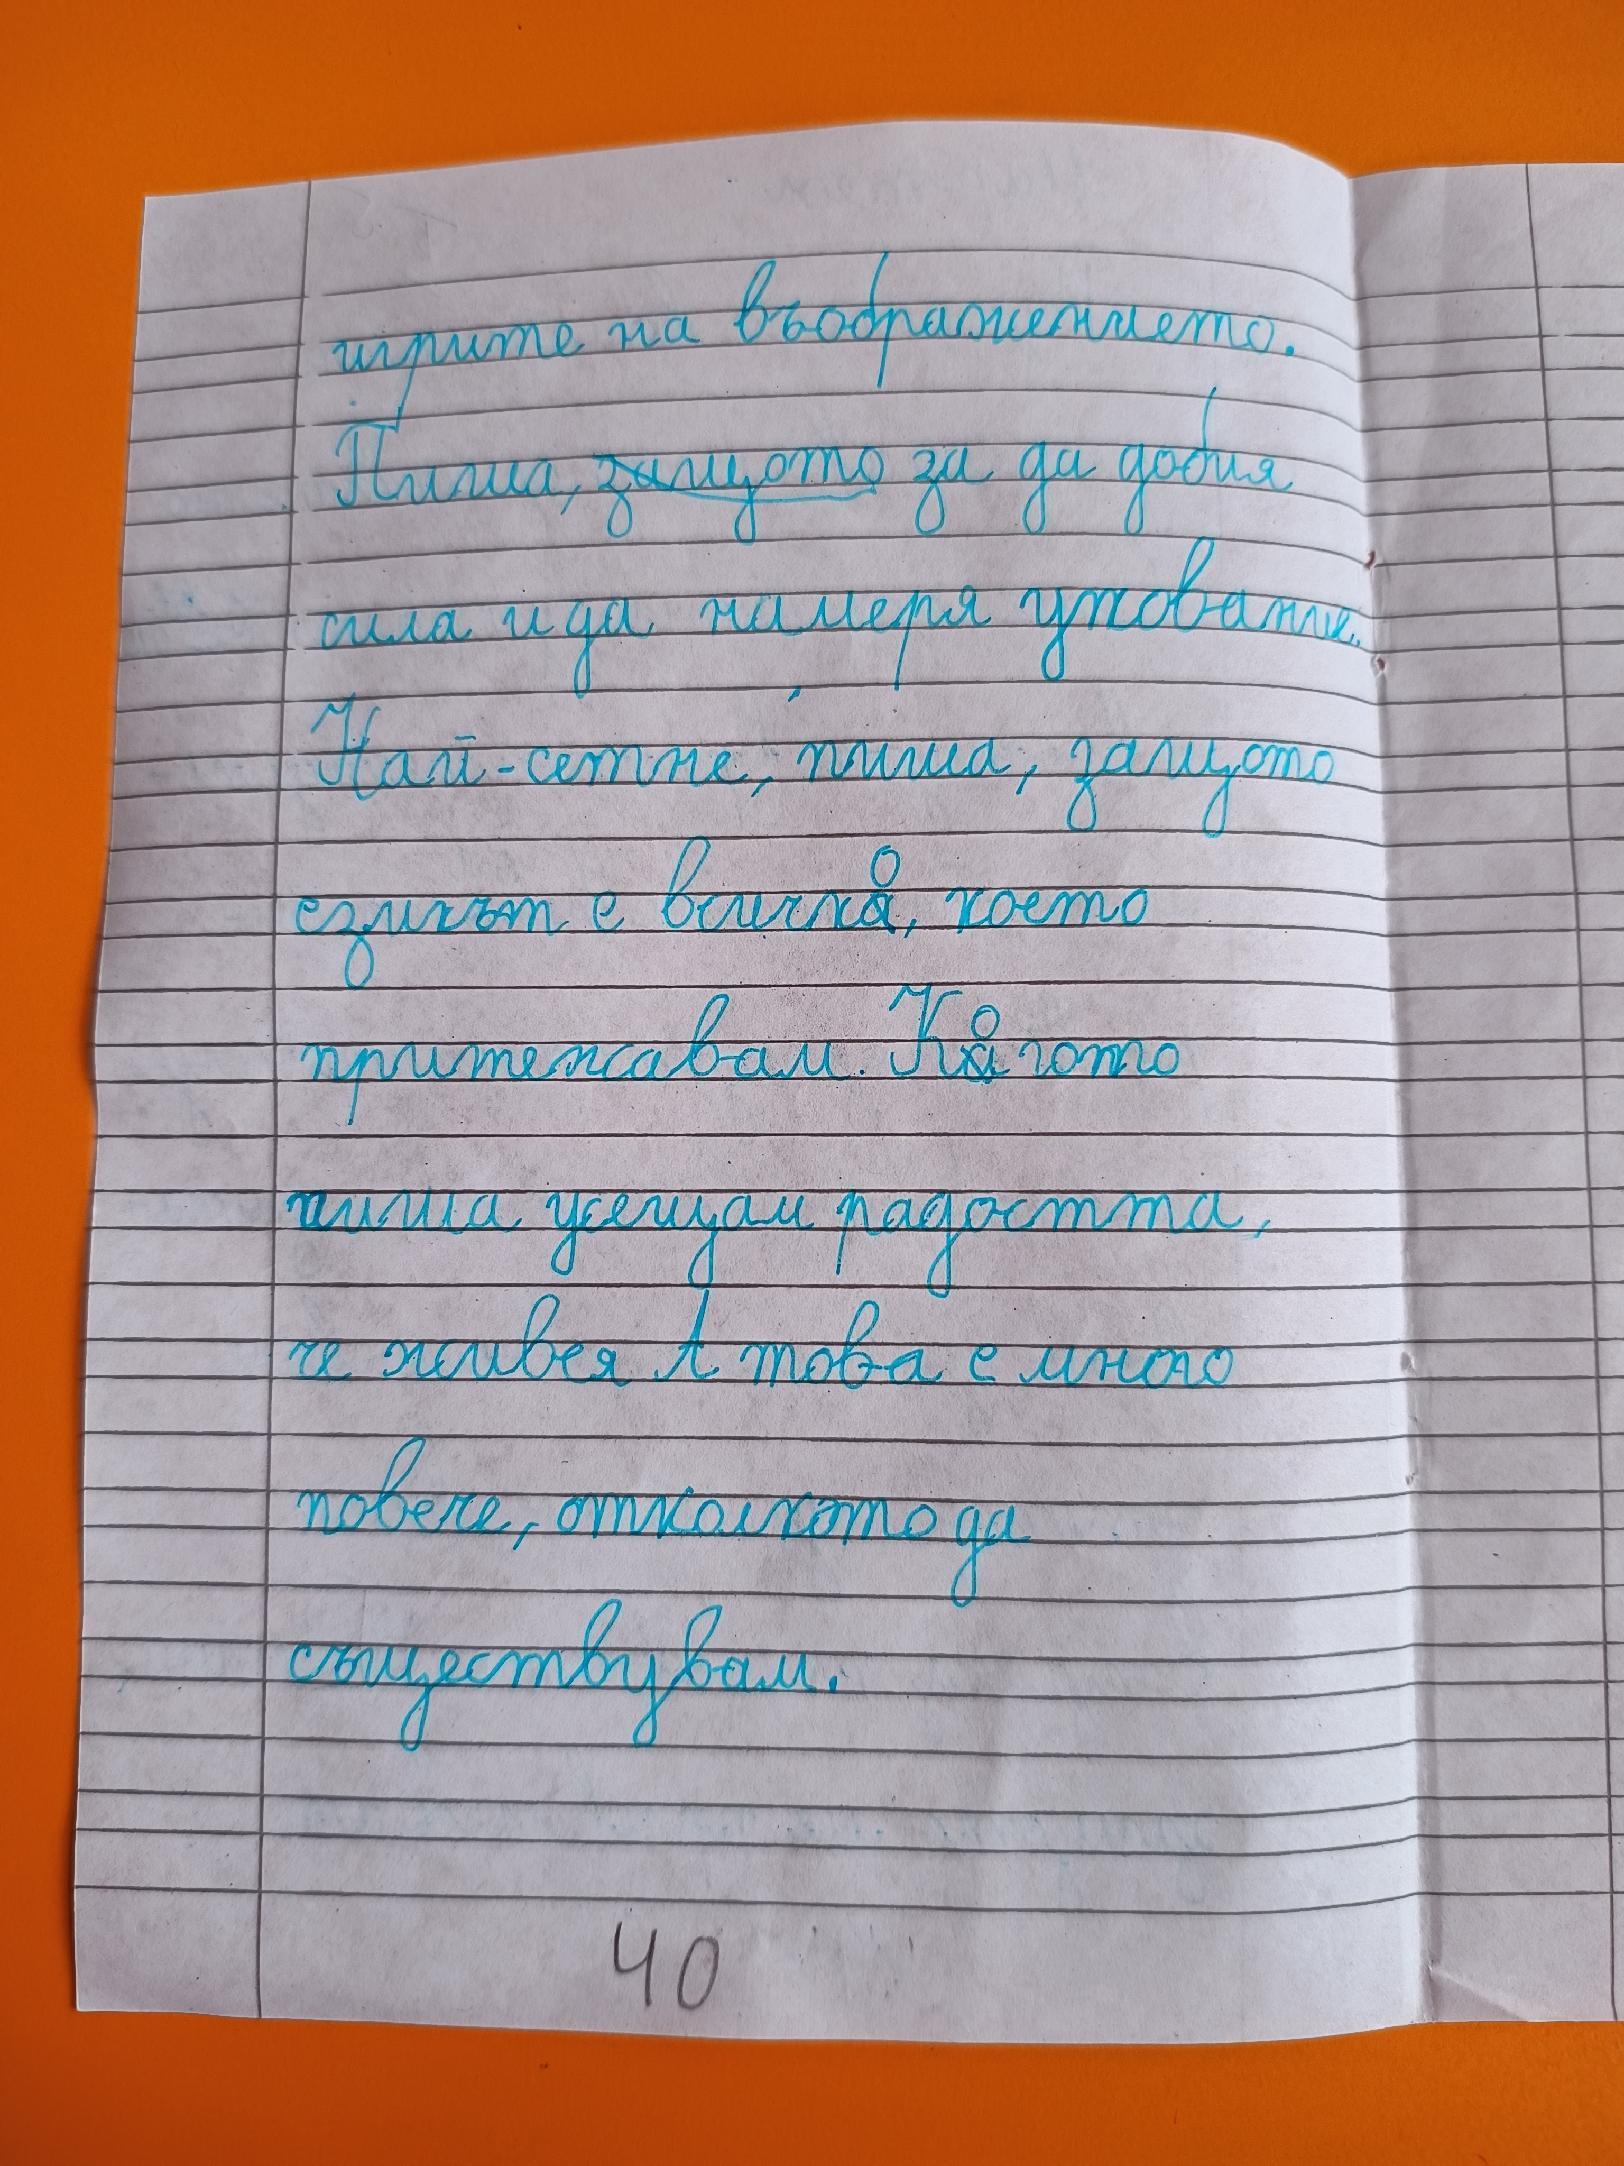 игрите на въображението.
Пиша, защото за да добия
сила и да намеря упование.
Най-сетне, пиша, защото
езикът е всичко, което
притежавам. Когото
пиша усещам радостта,
че живея А това е много
повече, отколкото да
съществувам.
40